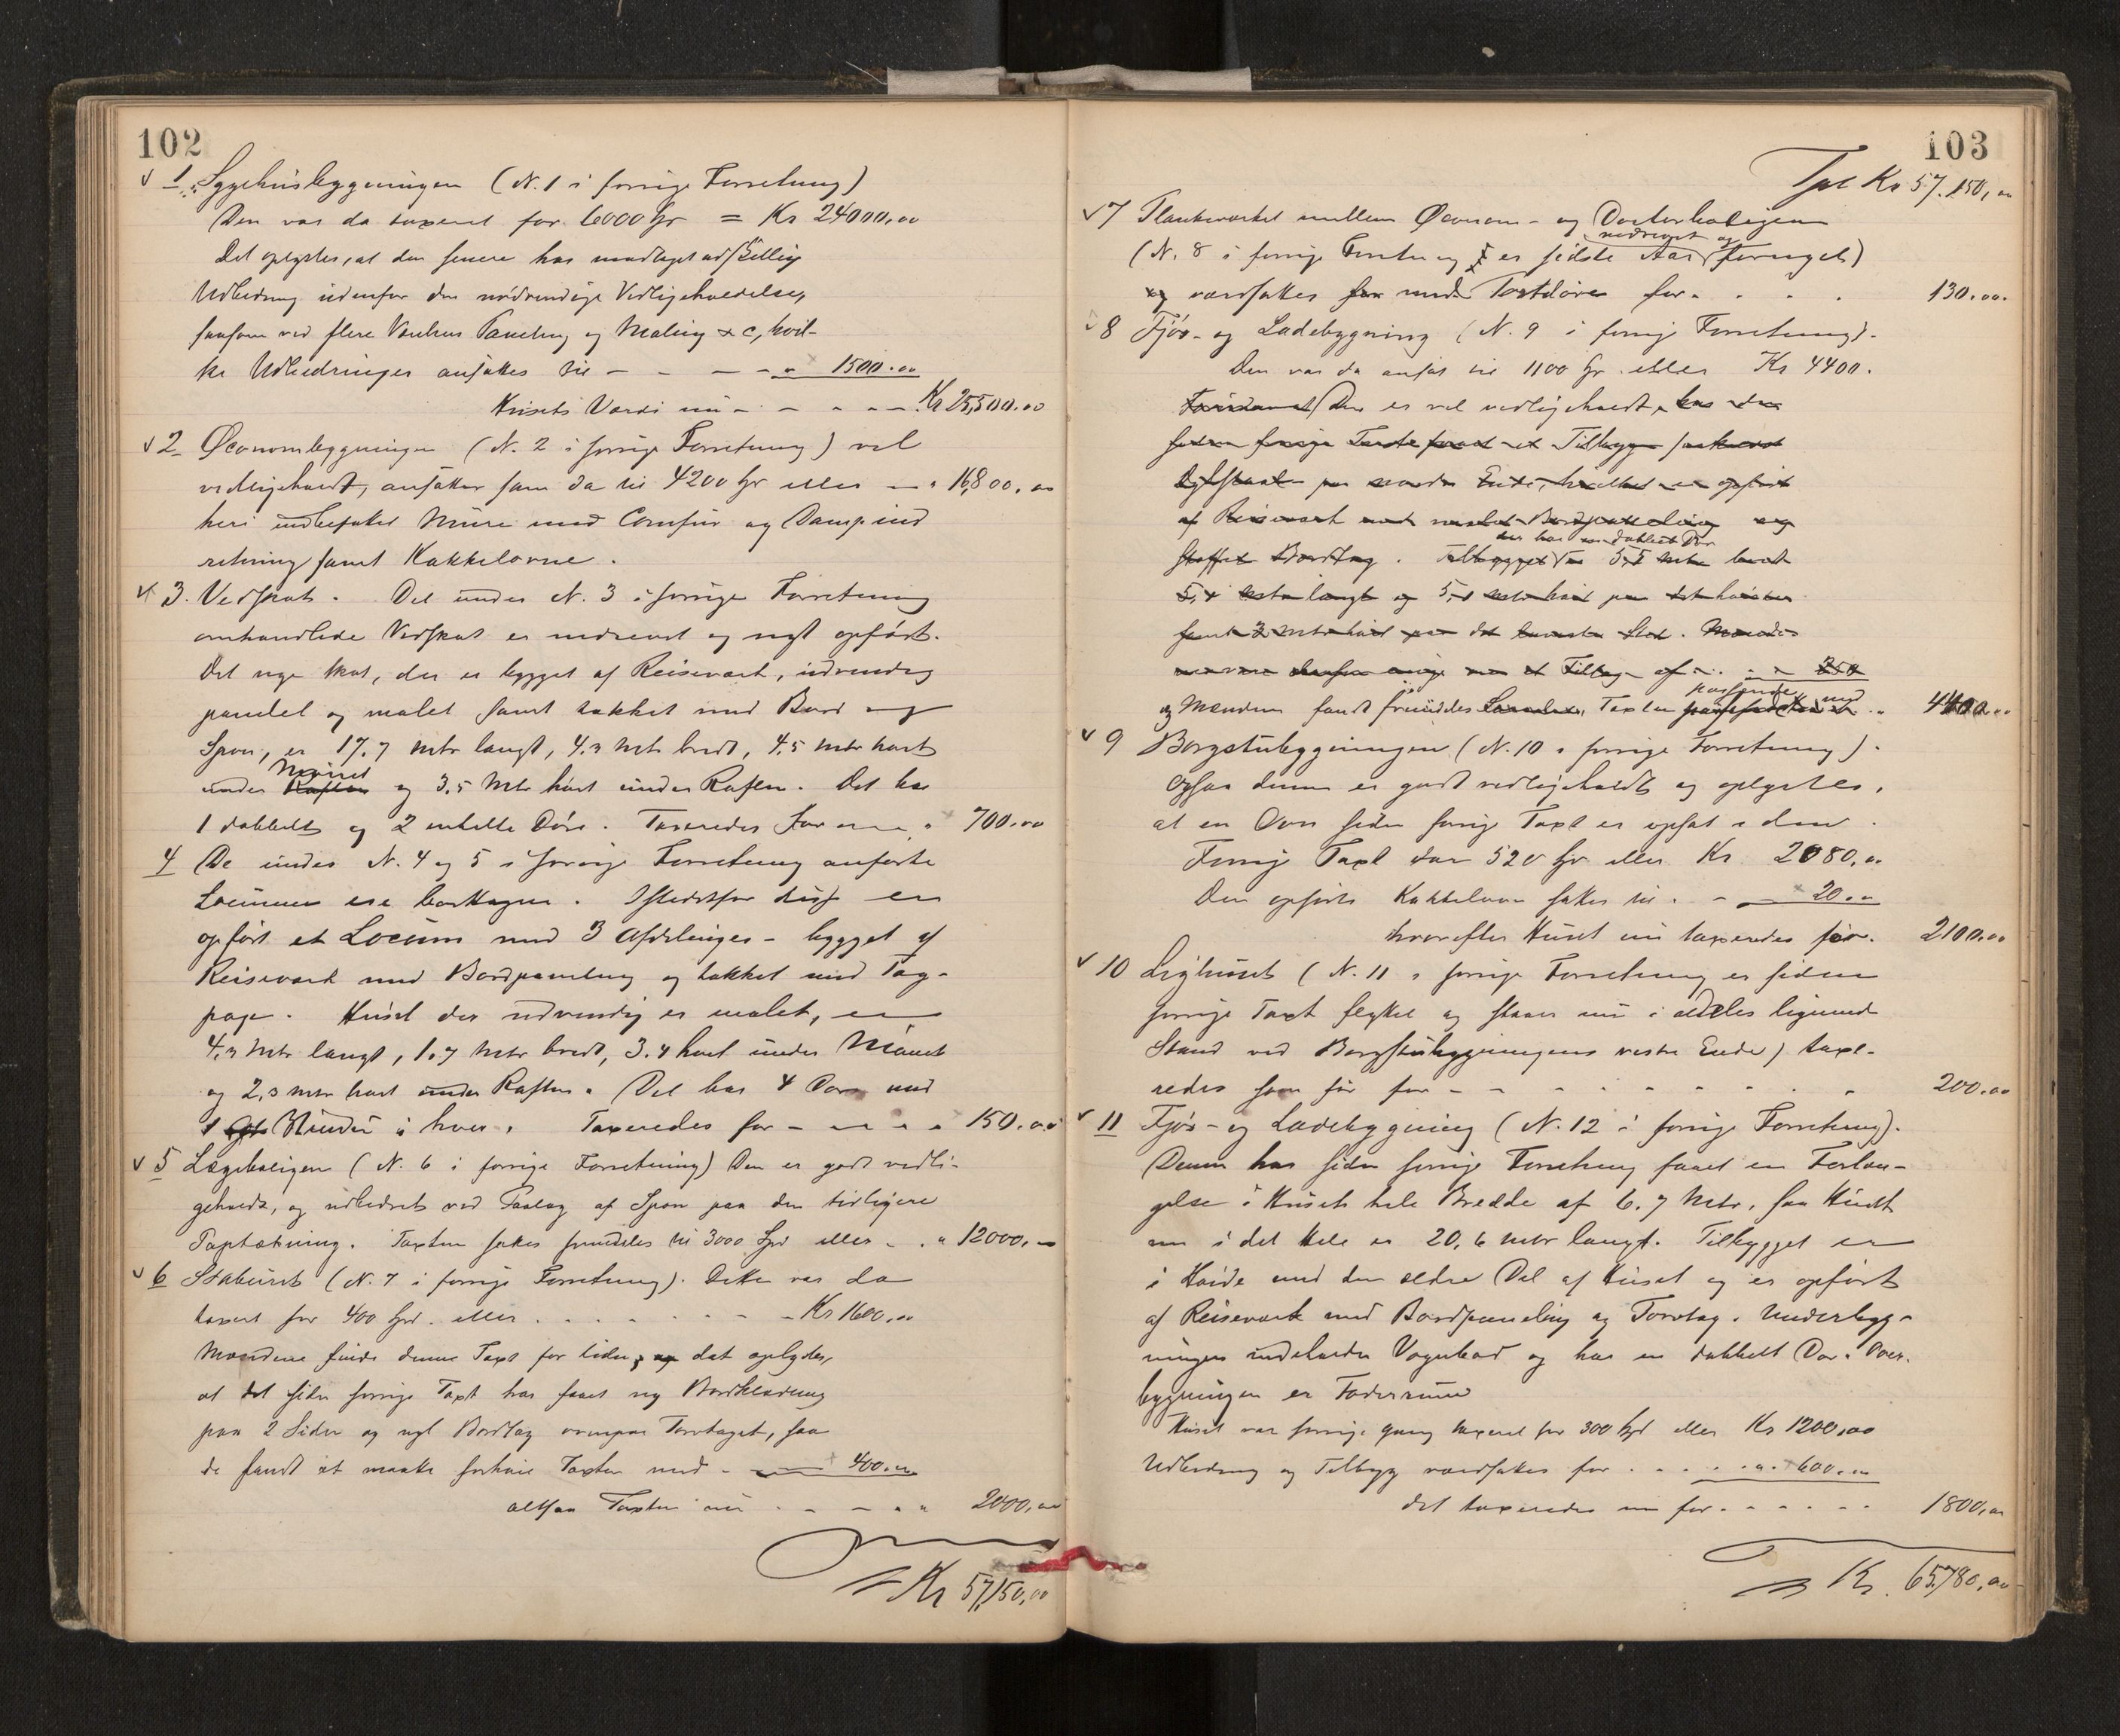 102
1. Sygehusbyggningen (N. 1 i forrige Forretning)
Den var da taxeret for 6000 Spr = Kr 24000,00
Det oplystes, at den senere har modtaget adskillig
Udbedring udenfor den nödvendige Vedligeholdelse,
saasom ved flere Paneling og Maling &c, hvil-
ke Udbedringer ansættes til - - - - " 1500.00
Husets Værdi nu - - - - Kr 25,500.00
2 Øconombyggningen (N. 2 i forrige Forretning) vel
vedligeholdt, ansættes som da til 4200 Spr eller - " 16,800.00
heri indbefattet Mure med Comfur og Dampind
retning samt Kakkelovne.
3. Vedskot. Det under N. 3 i forrige Forretning
omhandlede Vedskot er nedrevet og nyt opfört.
Det nye skot, der er bygget af Reisværk, udvendig
panelet og malet samt tækket med Bord og
Spon, er 17.7 mtr langt, 4.3 mtr bredt, 4.5 mtr höit
Mönet
under Raften og 3.5 Mtr höit under Raften. Det har
1 dobbelt og 2 enkelte Döre. Taxeredes for - - " 700.00
4 De under N. 4 og 5 i forrige Forretning anförte
Locummer ere borttagne. Istedetfor disse er
opfört et Locum med 3 Afdelinger - bygget af
Reisværk med Bordpaneling og tækket med Tag-
pap. Huset der udvendig er malet, er
4,3 Mtr langt, 1.7 Mtr bredt, 3.4 höit under Mönet
og 2,3 mtr höit under Raften. Det har 4 Döre med
1 Vindu i hver. Taxeredes for - - - " 150.00
5 Lægeboligen (N. 6 i forrige Forretning) Den er godt vedli-
geholdt, og udbedret ved Paalag af Spon paa den tidligere
Tagtækning. Taxten sættes fremdeles til 3000 Spd eller - . " 12000,00
6 Stabburet (N. 7 i forrige Forretning). Dette var da
taxert for 400 Spd. eller . . . . - - - Kr 1600,00
Mændene finde denne Taxt for liden, og det oplystes,
at det siden forrige Taxt har faaet ny Bordklædning
paa 2 Sider og nyt Bordtag ovenpaa Torvtaget, saa
de fandt at maatte forhöie Taxten med - - 400.00
altsaa Taxten nu . - - " " 2000,00
Kr 57,150,00
103
Tpt Kr 57.150,00
7 Plankeværket mellem Øconom- og Doctorboligen
nedrevet og
(N. 8 i forrige Forretning) er sidste Aar fornyet)
og værdsættes for med Portdöre for . . . . 130.00.
8 Fjös- og Ladebygning (N. 9 i forrige Forretning).
Den var da ansat til 1100 Spr. eller Kr 4400.
Den er vel vedligeholdt, har den
siden forrige Taxt faaet et Tilbygg
paa nordre Ende, hvilket er opfört
af Reisværk med malet Bordpaneling og
der har en dobbelt Dör
Bordtag. Tilbygget er 5,8 mtr bredt
langt og
samt 3 mtr höit paa det laveste Sted. Mændene
et Tillæg af . . . 250
passende
og Mændene fandt fremdeles Taxten . . " 4400.00
9 Borgstubygningen (N. 10 i forrige Forretning).
Ogsaa denne er godt vedligeholdt og oplystes,
at en Ovn siden forrige Taxt er opsat i den.
Forrige Taxt var 520 Spr eller Kr. 2080,00
Den opförte Kakkelovn sættes til . - - 20.00
hvorefter Huset nu taxeredes for. 2100.00
10 Lighuset (N. 11 i forrige Forretning er siden
forrige Taxt flyttet og staar nu i aldeles lignende
Stand ved Borgstubygningens vestre Ende) taxe-
redes som för for - - - - - - - - 200.00
11 Fjös- og Ladebygning (N. 12 i forrige Forretning).
Denne har siden forrige Forretning faaet en Forlæn-
gelse i Husets hele Bredde af 6.7 Mtr, saa Huset
nu i det Hele er 20,6 mtr langt. Tilbygget er
i Höide med den ældre Del af Huset og er opfört
af Reisværk med Bordpaneling og Torvtag. Underbyg-
ningen indeholder Vognbod og har en dobbelt Dör. Over-
bygningen er Foderrum
Huset var forrige Gang taxeret for 300 Spd eller Kr 1200,00
Udbedring og Tilbygg værdsættes for . . . . . " 600.00
det taxeredes nu for . - - - - 1800,00
Kr. 65,780,00